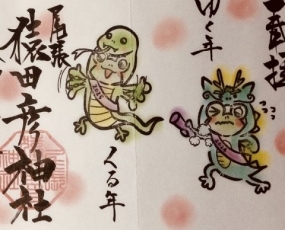 奉拝
ゆく年
くる年
尾張
猿田彦神社